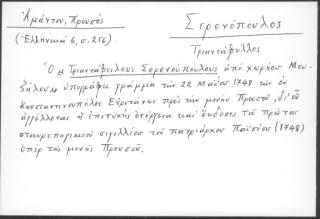 Ἀμάντου, Προυσός
Σερενόπουλος
(Ἑλληνικά 6, σ. 256).
Τριαντάφυλλος
Ὁ Τριαντάφυλλος Σερενόπουλος ἀπό χωρίου Μου-
ζήλου ὑπογράφει γράμμα τῶν 22 Μαΐου 1748 τῶν ἐν
Κωνσταντινοπόλει Εὐρυτάνων πρός τήν μονήν Προυσοῦ, δι' οὗ
ἀγγέλλεται ἡ ἐπιτυχής ἐνέργεια καί ἔκδοσις τοῦ πρώτου
σταυροπηγιακοῦ σιγιλλίου τοῦ πατριάρχου Παϊσίου (1748)
ὑπέρ τῆς μονῆς Προυσοῦ.